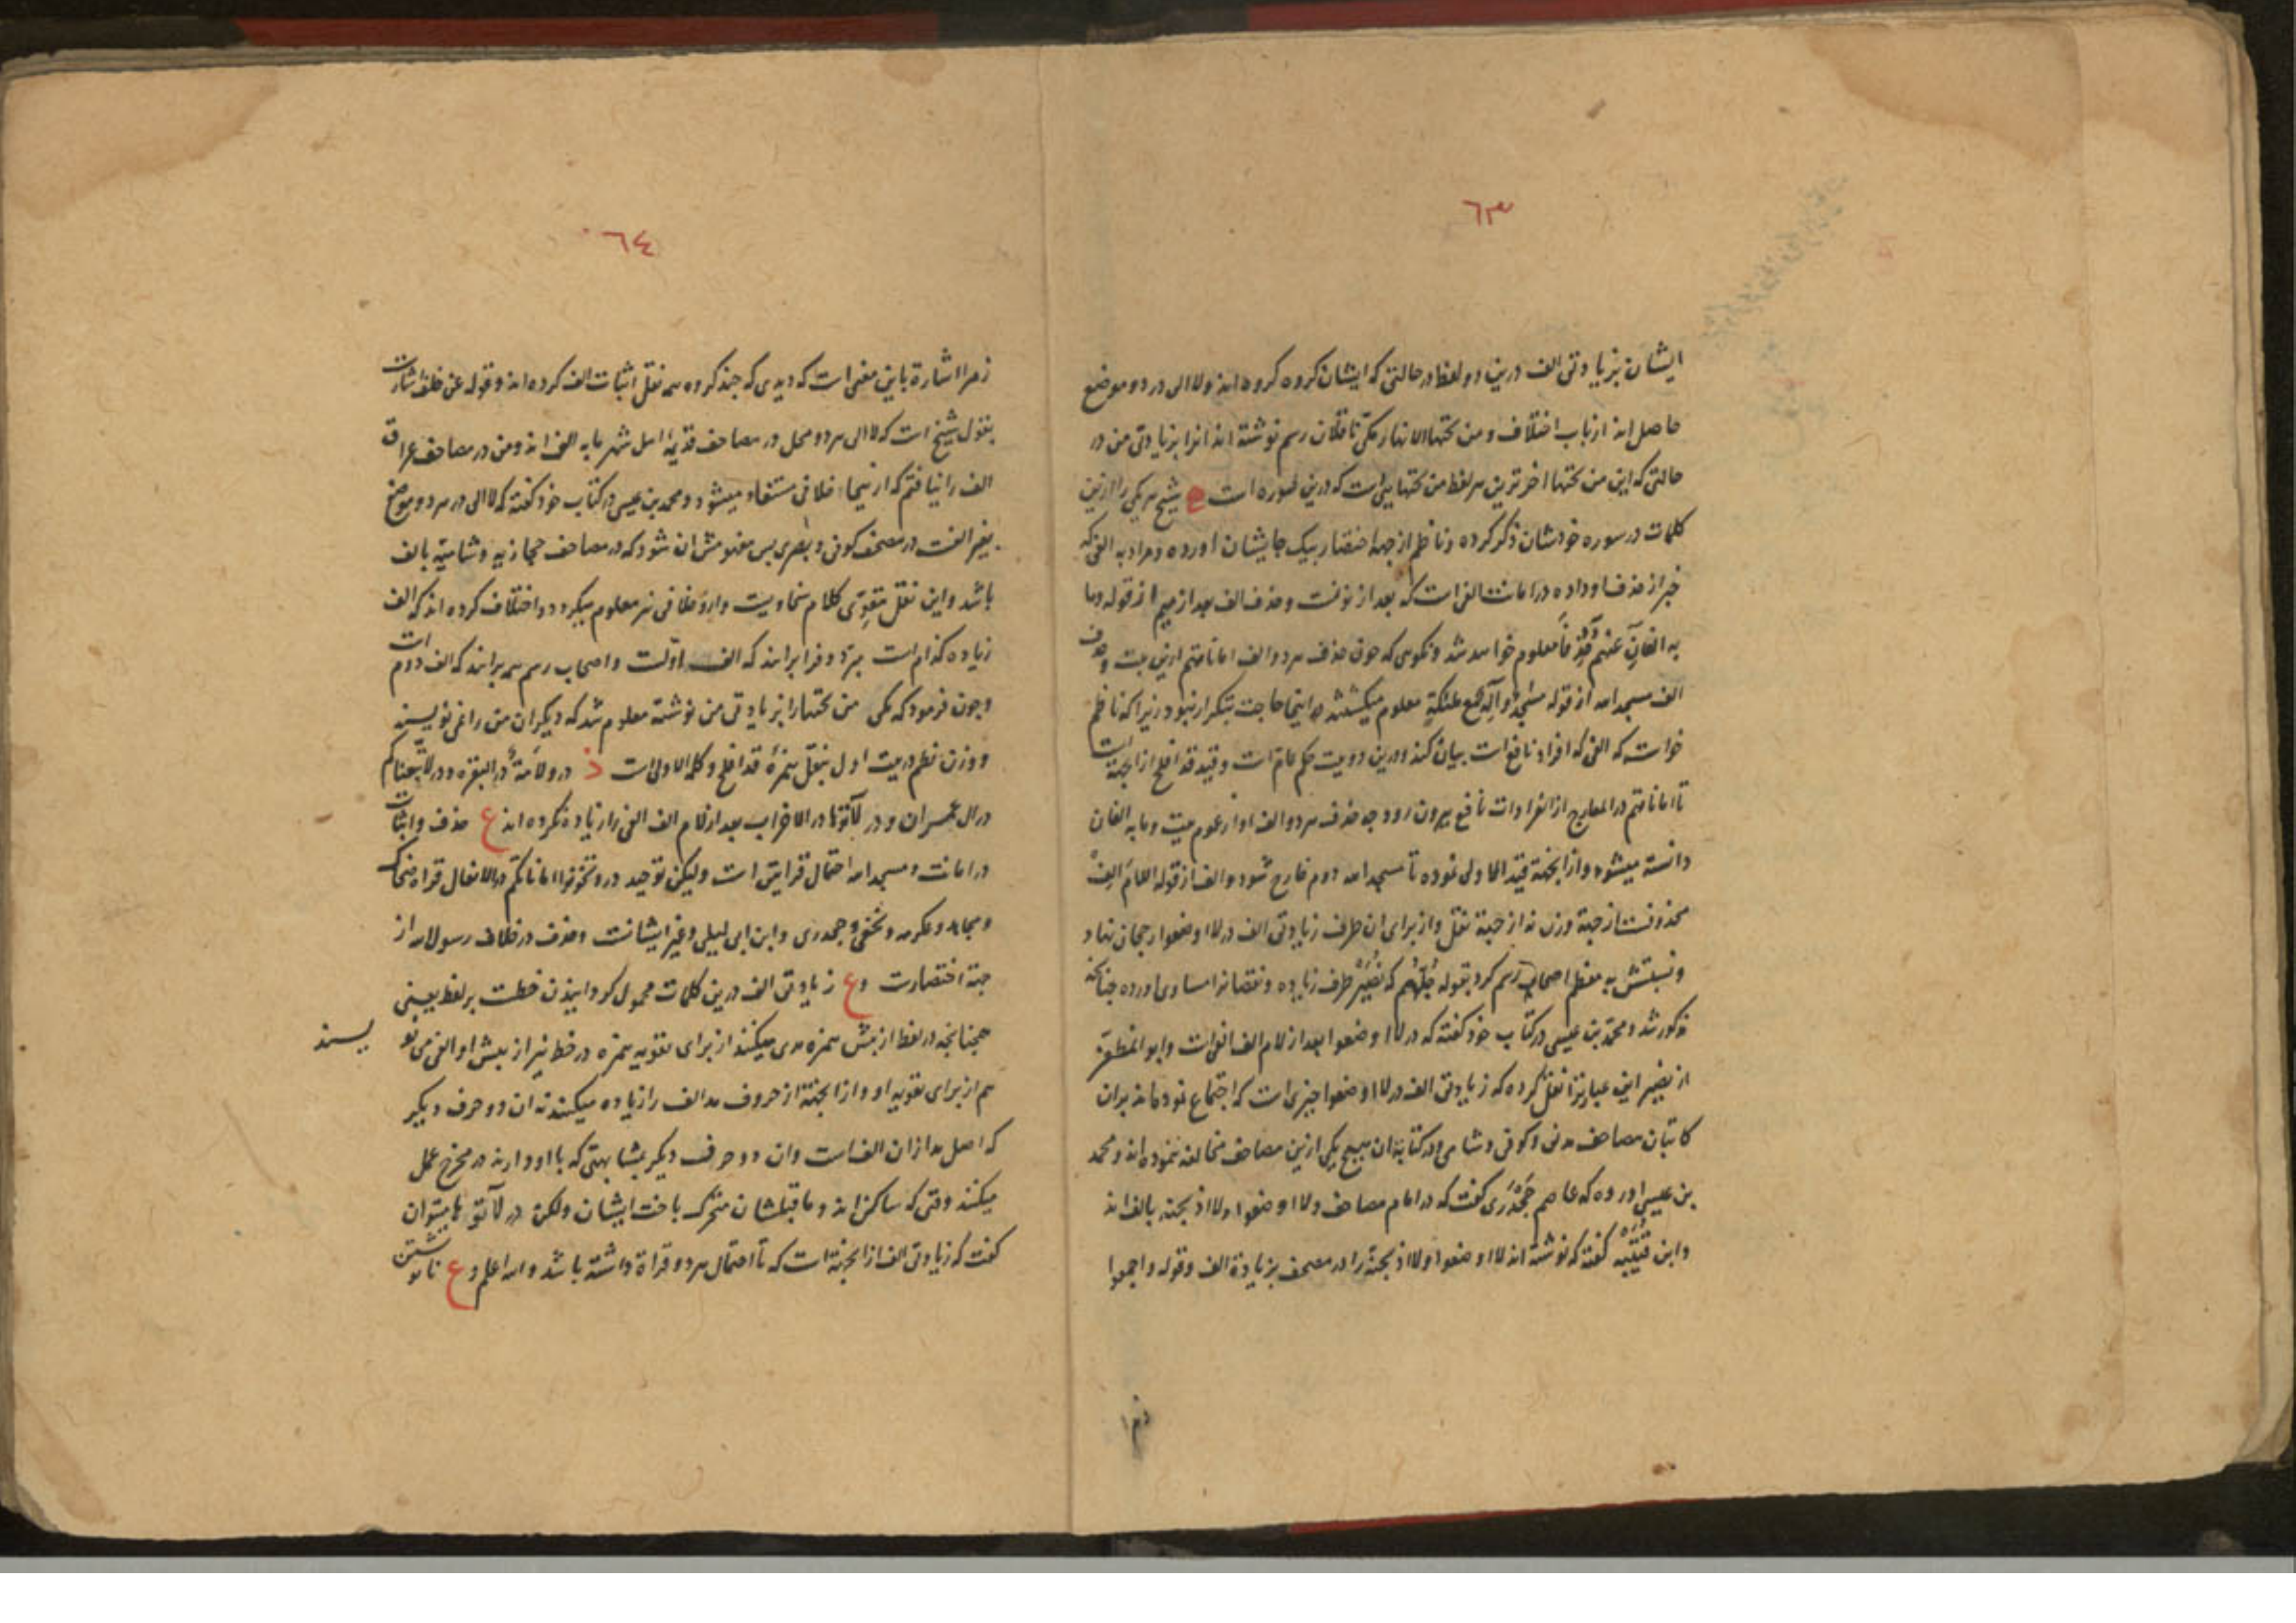 ٦٣
ایشان بزیادتی الف درین دو لفظ در حالتی که ایشان کروه کروه اند ولا الی در دو موضع
حاصل اند از باب اختلاف و من تحتها الانهار مکی ناقلان رسم نوشته اند انرا بزیادتی من در
حالتی که این من تحتها اخر ترین هر لفظ من تحتهایی است که درین سوره است شیخ هر یکی را ازین
کلمات در سوره خودشان ذکر کرده و ناظم از جهة اختصار بیک جا ایشان اورده و مراد به الفی که
خبر از حذف او داده در امانات الفی است که بعد از نونست و حذف الف بعد از میم از قوله وما
به الفان عنهم معلوم خواهد شد و نکویی که چون حذف هر دو الف اماناتهم ازین بیت و حذف
الف مسجد الله از قوله مسٰجد واله مع ملئکة معلوم میکشتند اینجا حاجت بتکرار نبود زیرا که ناظم
خواست که الفی که افراد نافع است بیان کند و درین دو بیت حکم عام است و قید قد افلح از انجهة است
تا اماناتهم در المعارج از انفرادات نافع بیرون رود چه حذف هر دو الف او از عموم بیت وما به الفان
دانسته میشود و از انجهة قید الاولی نموده تا مسجد الله دوم خارج شود و الف از قوله اللام الف
محذوفست از جهة وزن نه از جهة نقل و از برای ان طرف زیادتی الف در لا اوضعوا رجحان نهاد
و نسبتش به معظم اصحاب رسم کرد بقوله جلهم که نصیر طرف زیاده و نقصانرا مساوی اورده چنانکه
مذکور شد و محمد بن عیسی در کتاب خود کفته که در لا اوضعوا بعد از لام الف الفی است و ابو المظفر
از نصیر این عبارترا نقل کرده که زیادتی الف در لا اوضعوا چیزی است که اجتماع نموده اند بران
کاتبان مصاحف مدنی و کوفی و شامی و در کتابة ان بهیچ یکی ازین مصاحف مخالفه ننموده اند و محمد
بن عیسی اورده که عاصم جحدری کفت که در امام مصاحف ولا اوضعوا ولا اذبحنه بالف اند
وابن قتیبه کفته که نوشته اند لا اوضعوا ولا اذبحنه را در مصحف بزیادة الف و قوله واجمعوا
زمرا
٦٤
زمرا اشارة باین معنی است که دیدی که چند کروه همه نقل اثبات الف کرده اند و قوله عن خلف اشارت
بقول شیخ است که لا الی هر دو محل در مصاحف قدیمه اهل شهرها به الف اند و من در مصاحف عراق
الف را نیافتم که ازینجا خلافی مستفاد میشود و محمد بن عیسی در کتاب خود کفته که لا الی در هر دو موضع
بغیر الفست در مصحف کوفی و بصری پس مفهومش ان شود که در مصاحف حجازیه و شامیه بالف
باشد و این نقل مقوی کلام سخاویست و ازو خلافی نیز معلوم میکردد و اختلاف کرده اند که الف
زیاده کدام است مبرد و فرا برانند که الف اولست و اصحاب رسم همه برانند که الف دوم است
و چون فرمود که مکی من تحتها را بزیادتی من نوشته معلوم شد که دیکران من را نمی نویسند
و وزن نظم در بیت اول بنقل همزه قد افلح و کلمه الاولی است د در ولامة در البقره و در لاتبعناکم
در ال عمران و در لاتوها در الاحزاب بعد از لام الف الفی را زیاده نکرده اند ع حذف و اثبات
در امانات و مسجد الله احتمال قرایتین است ولیکن توحید در و تخونوا اماناتکم در الانفال قراة ضحاک
و مجاهد و عکرمه و نخعی و جحدری و ابن ابی لیلی و غیر ایشانست و حذف در خلاف رسول الله از
جهة اختصارست وع زیادتی الف درین کلمات محمول کردانیدن خطست بر لفظ یعنی
همچنانچه در لفظ از پیش همزه مدی میکنند از برای تقویه همزه در خط نیز از پیش او الفی می نو یسند
هم از برای تقویه او و از انجهة از حروف مد الف را زیاده میکنند نه ان دو حرف دیکر
که اصل مد از ان الف است و ان دو حرف دیکر بمشابهتی که با او دارند در مخرج عمل
میکنند وقتی که ساکن اند و ماقبلشان متحرک با خت ایشان ولکن در لاتوها میتوان
کفت که زیادتی الف از انجهة است که تا احتمال هر دو قراة داشته باشد والله اعلم وع نانوشتن